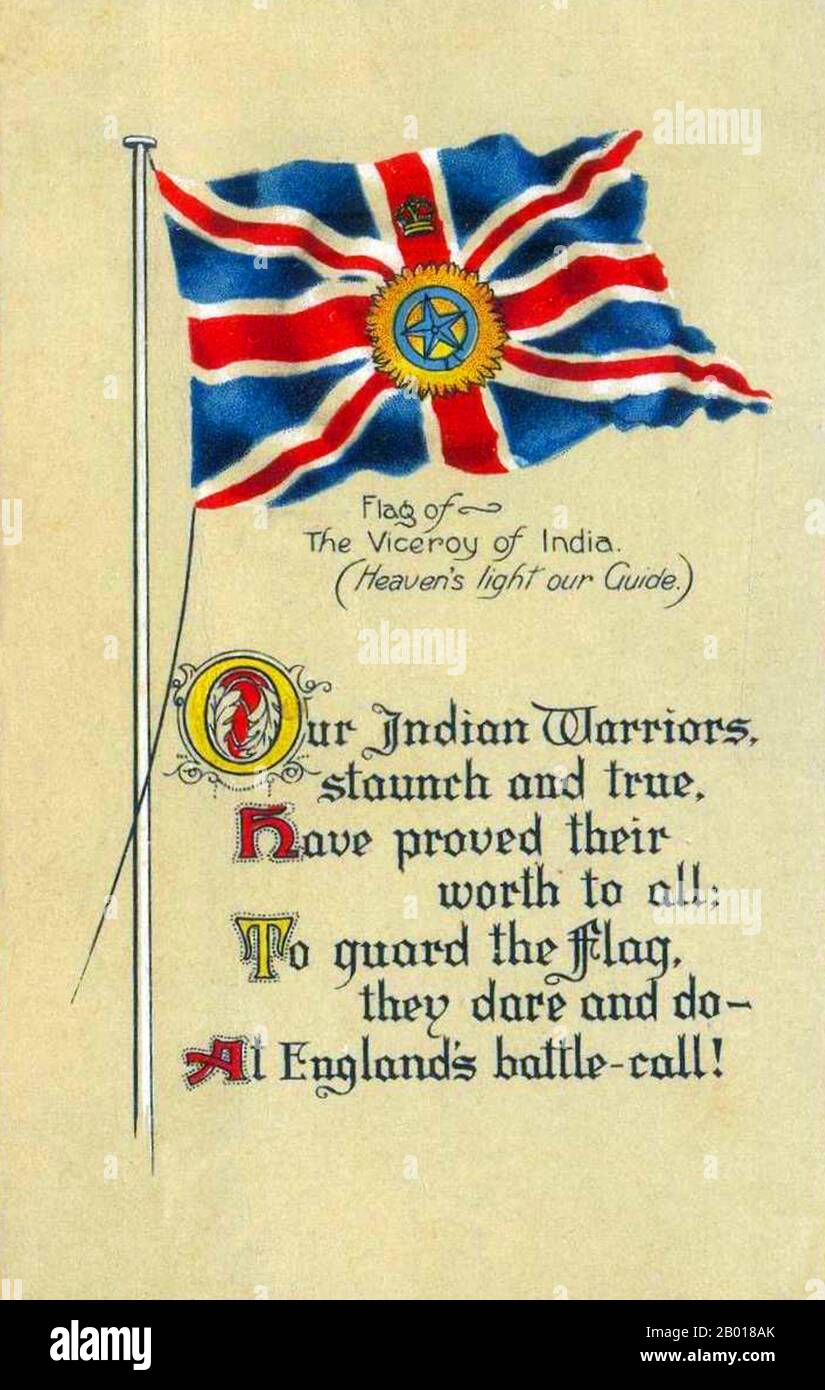 Flag of
The Viceroy of India.
(Heaven's light our Guide.)
Our Indian Warriors,
staunch and true,
Have proved their
worth to all;
To guard the Flag,
they dare and do-
At England's battle-call!
alamy
alamy
alamy
alamy
Image ID: 2B018AK
www.alamy.com